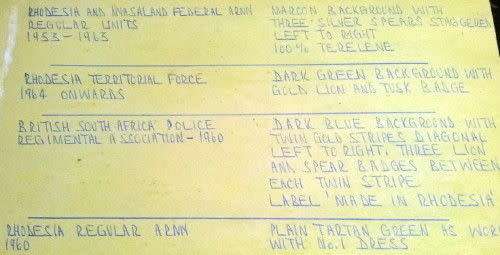 RHODESIA AND NYASALAND FEDERAL ARMY
REGULAR UNITS
1953 - 1963
MAROON BACKGROUND WITH
THREE SILVER SPEARS STAGGERED
LEFT TO RIGHT
100% TERELENE
RHODESIA TERRITORIAL FORCE
1964 ONWARDS
DARK GREEN BACKGROUND WITH
GOLD LION AND TUSK BADGE
BRITISH SOUTH AFRICA POLICE
REGIMENTAL ASSOCIATION - 1960
DARK BLUE BACKGROUND WITH
TWIN GOLD STRIPES DIAGONAL
LEFT TO RIGHT, THREE LION
AND SPEAR BADGES BETWEEN
EACH TWIN STRIPE.
LABEL 'MADE IN RHODESIA'
RHODESIA REGULAR ARMY
1960
PLAIN TARTAN GREEN AS WOR
WITH No.1 DRESS